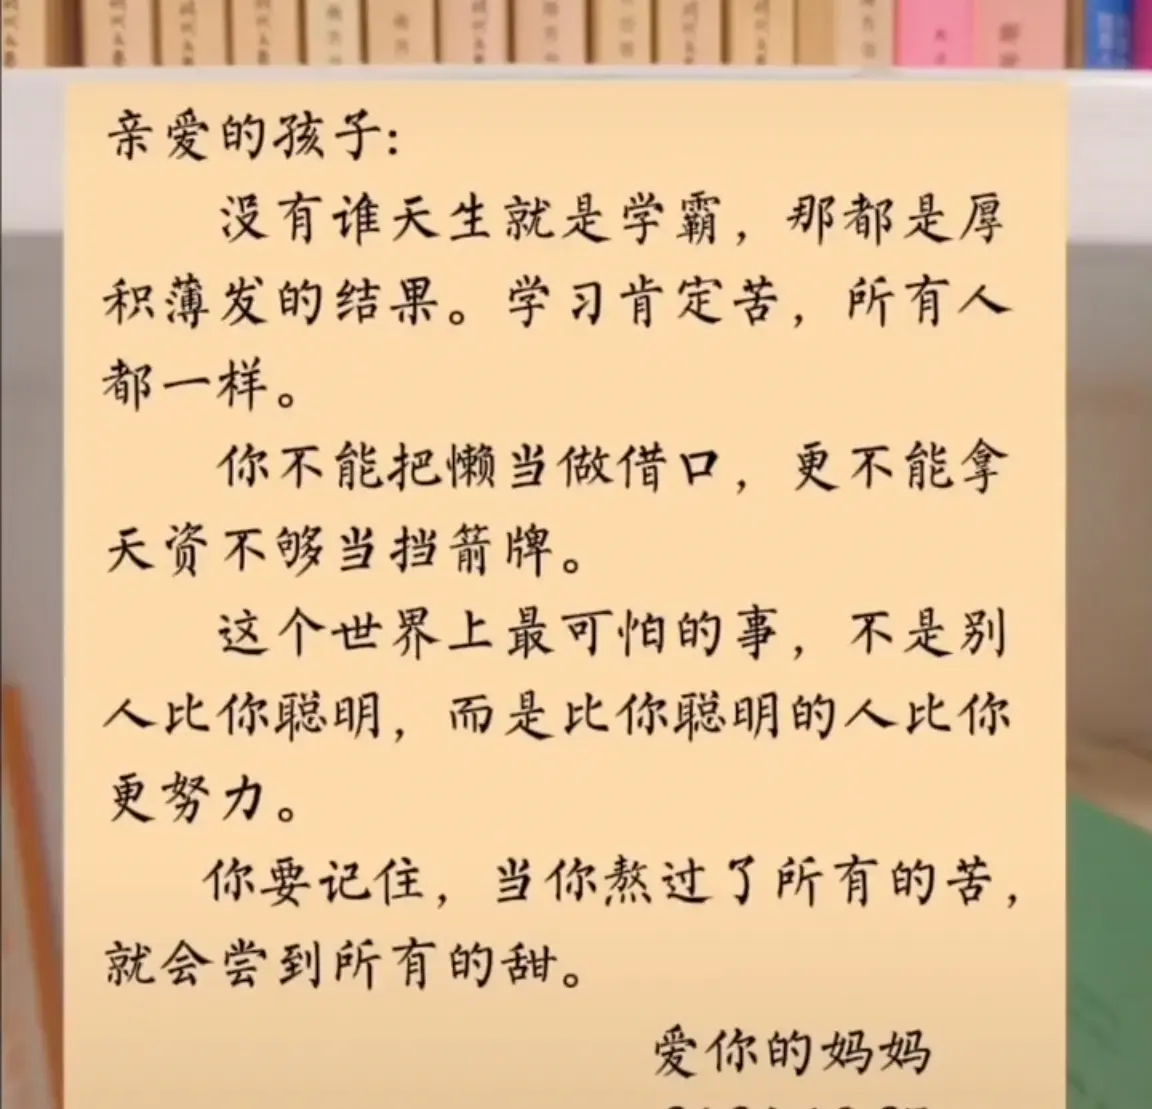 亲爱的孩子:
没有谁天生就是学霸，那都是厚
积薄发的结果。学习肯定苦，所有人
都一样。
你不能把懒当做借口，更不能拿
天资不够当挡箭牌。
这个世界上最可怕的事，不是别
人比你聪明，而是比你聪明的人比你
更努力。
你要记住，当你熬过了所有的苦，
就会尝到所有的甜。
爱你的妈妈